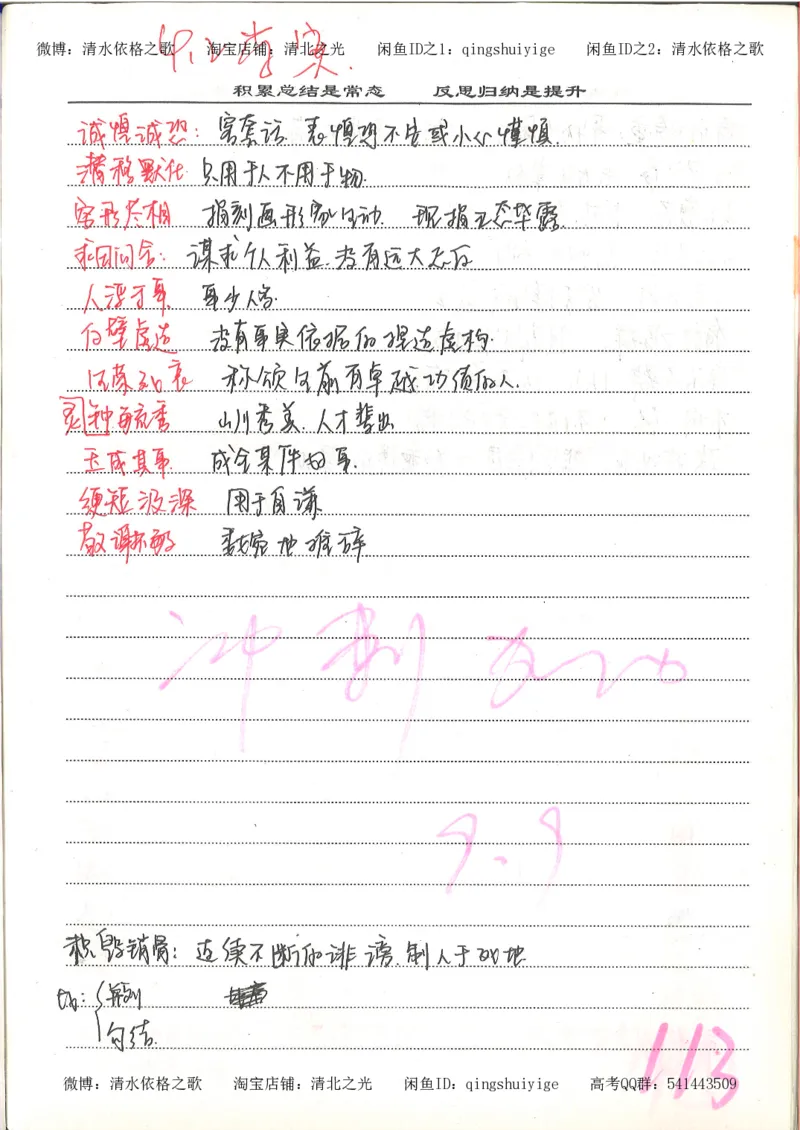 微博：清水依格之歌 淘宝店铺：清北之光 闲鱼ID之1：qingshuiyige 闲鱼ID之2：清水依格之歌
积累总结是常态 反思归纳是提升
诚惶诚恐：客套话 表惶恐不安或小心谨慎.
潜移默化 只用于人不用于物.
穷形尽相 指刻画形象生动. 现指丑态毕露.
求田问舍：谋求个人利益.没有远大志向
人浮于事 事少人多.
向壁虚造 没有事实依据的捏造虚构.
称颂 有卓越功绩的人.
灵钟毓秀 山川秀美.人才辈出
玉成其事. 成全某件好事.
绠短汲深 用于自谦
敬谢不敏 委婉地推辞
冲刺
9.9
积毁销骨：连续不断的诽谤.制人于死地
句结.
113
微博：清水依格之歌 淘宝店铺：清北之光 闲鱼ID：qingshuiyige 高考QQ群：541443509